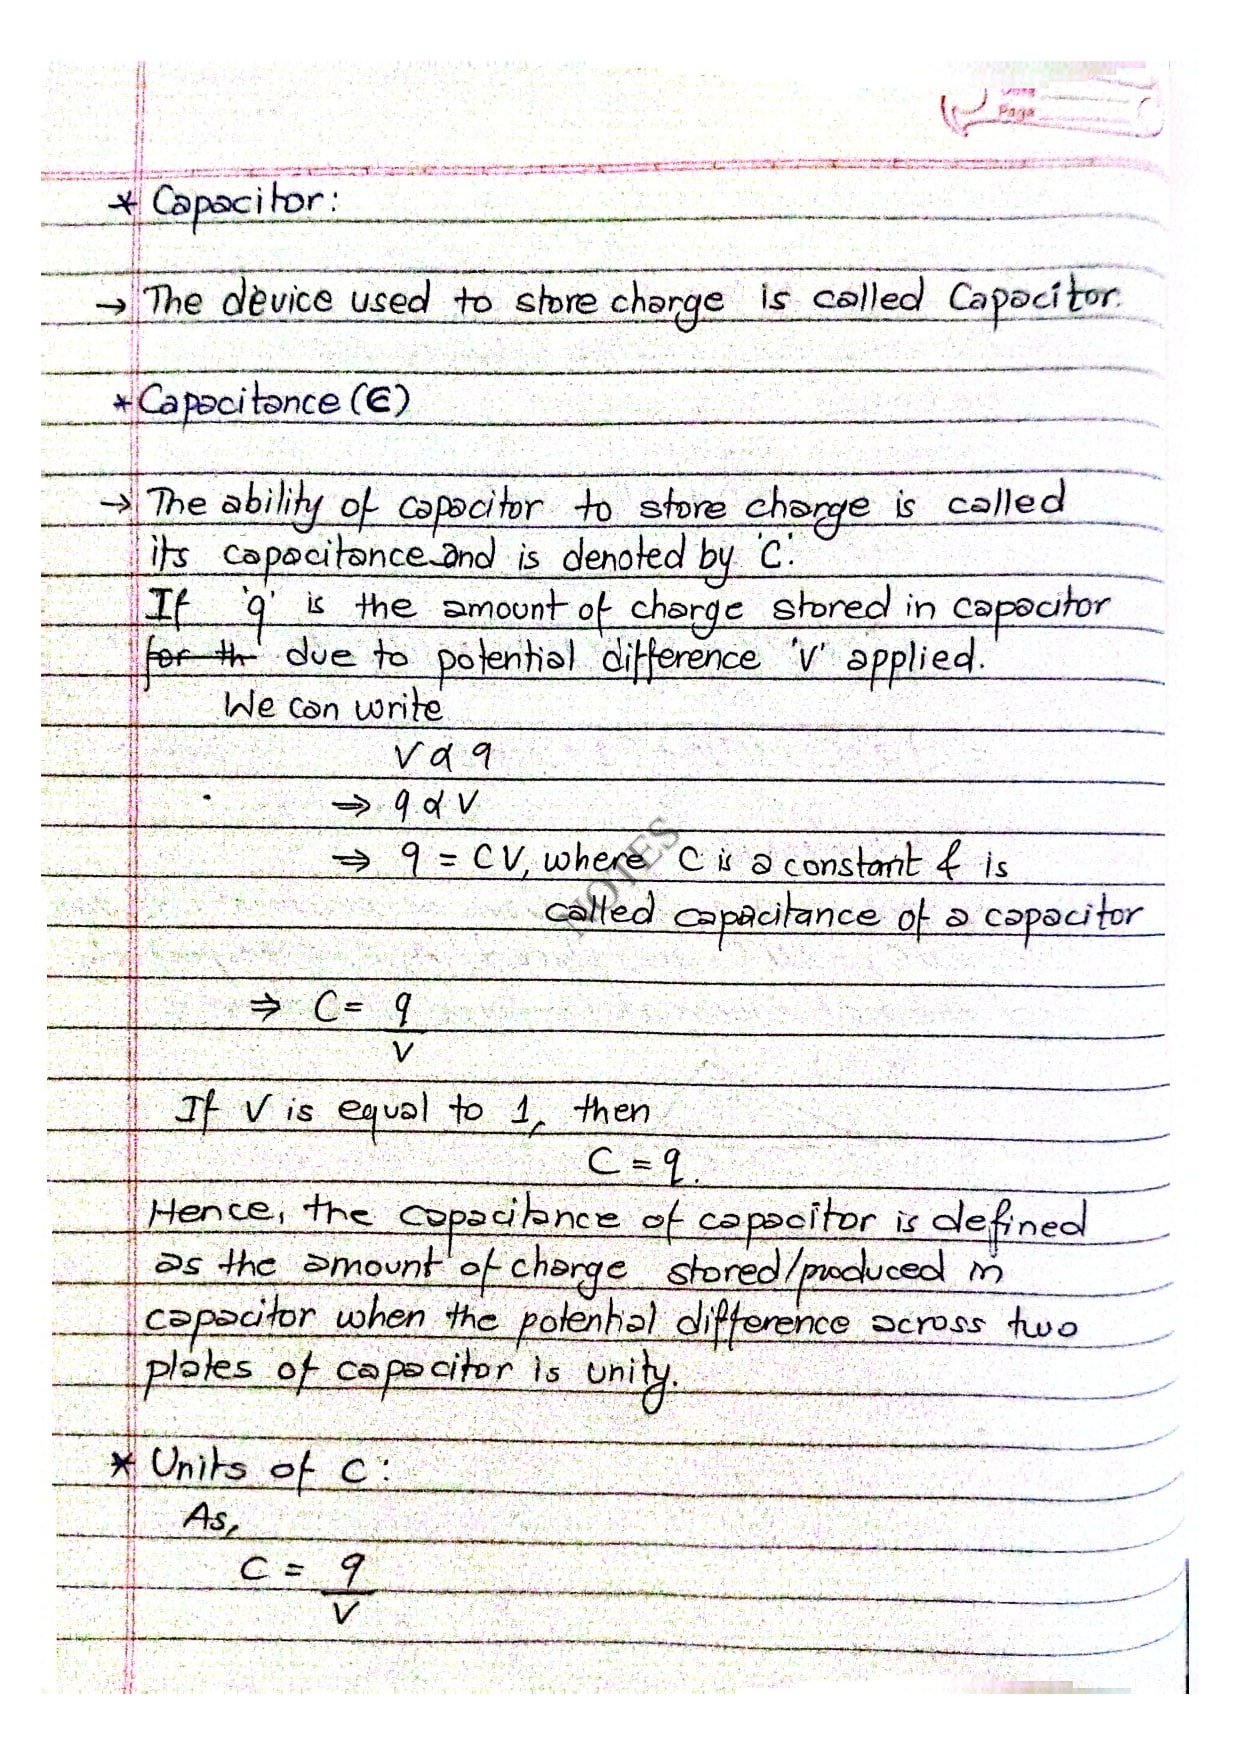 Page
* Capacitor:
→ The device used to store charge is called Capacitor.
* Capacitance (C)
→ The ability of capacitor to store charge is called
its capacitance and is denoted by 'C'.
If 'q' is the amount of charge stored in capacitor
for th due to potential difference 'V' applied.
We can write
V α q
⇒ q α V
⇒ q = CV, where C is a constant & is
called capacitance of a capacitor
NOTES
⇒ C = q
V
If V is equal to 1, then
C = q.
Hence, the capacitance of capacitor is defined
as the amount of charge stored/produced in
capacitor when the potential difference across two
plates of capacitor is unity.
* Units of C:
As,
C = q
V